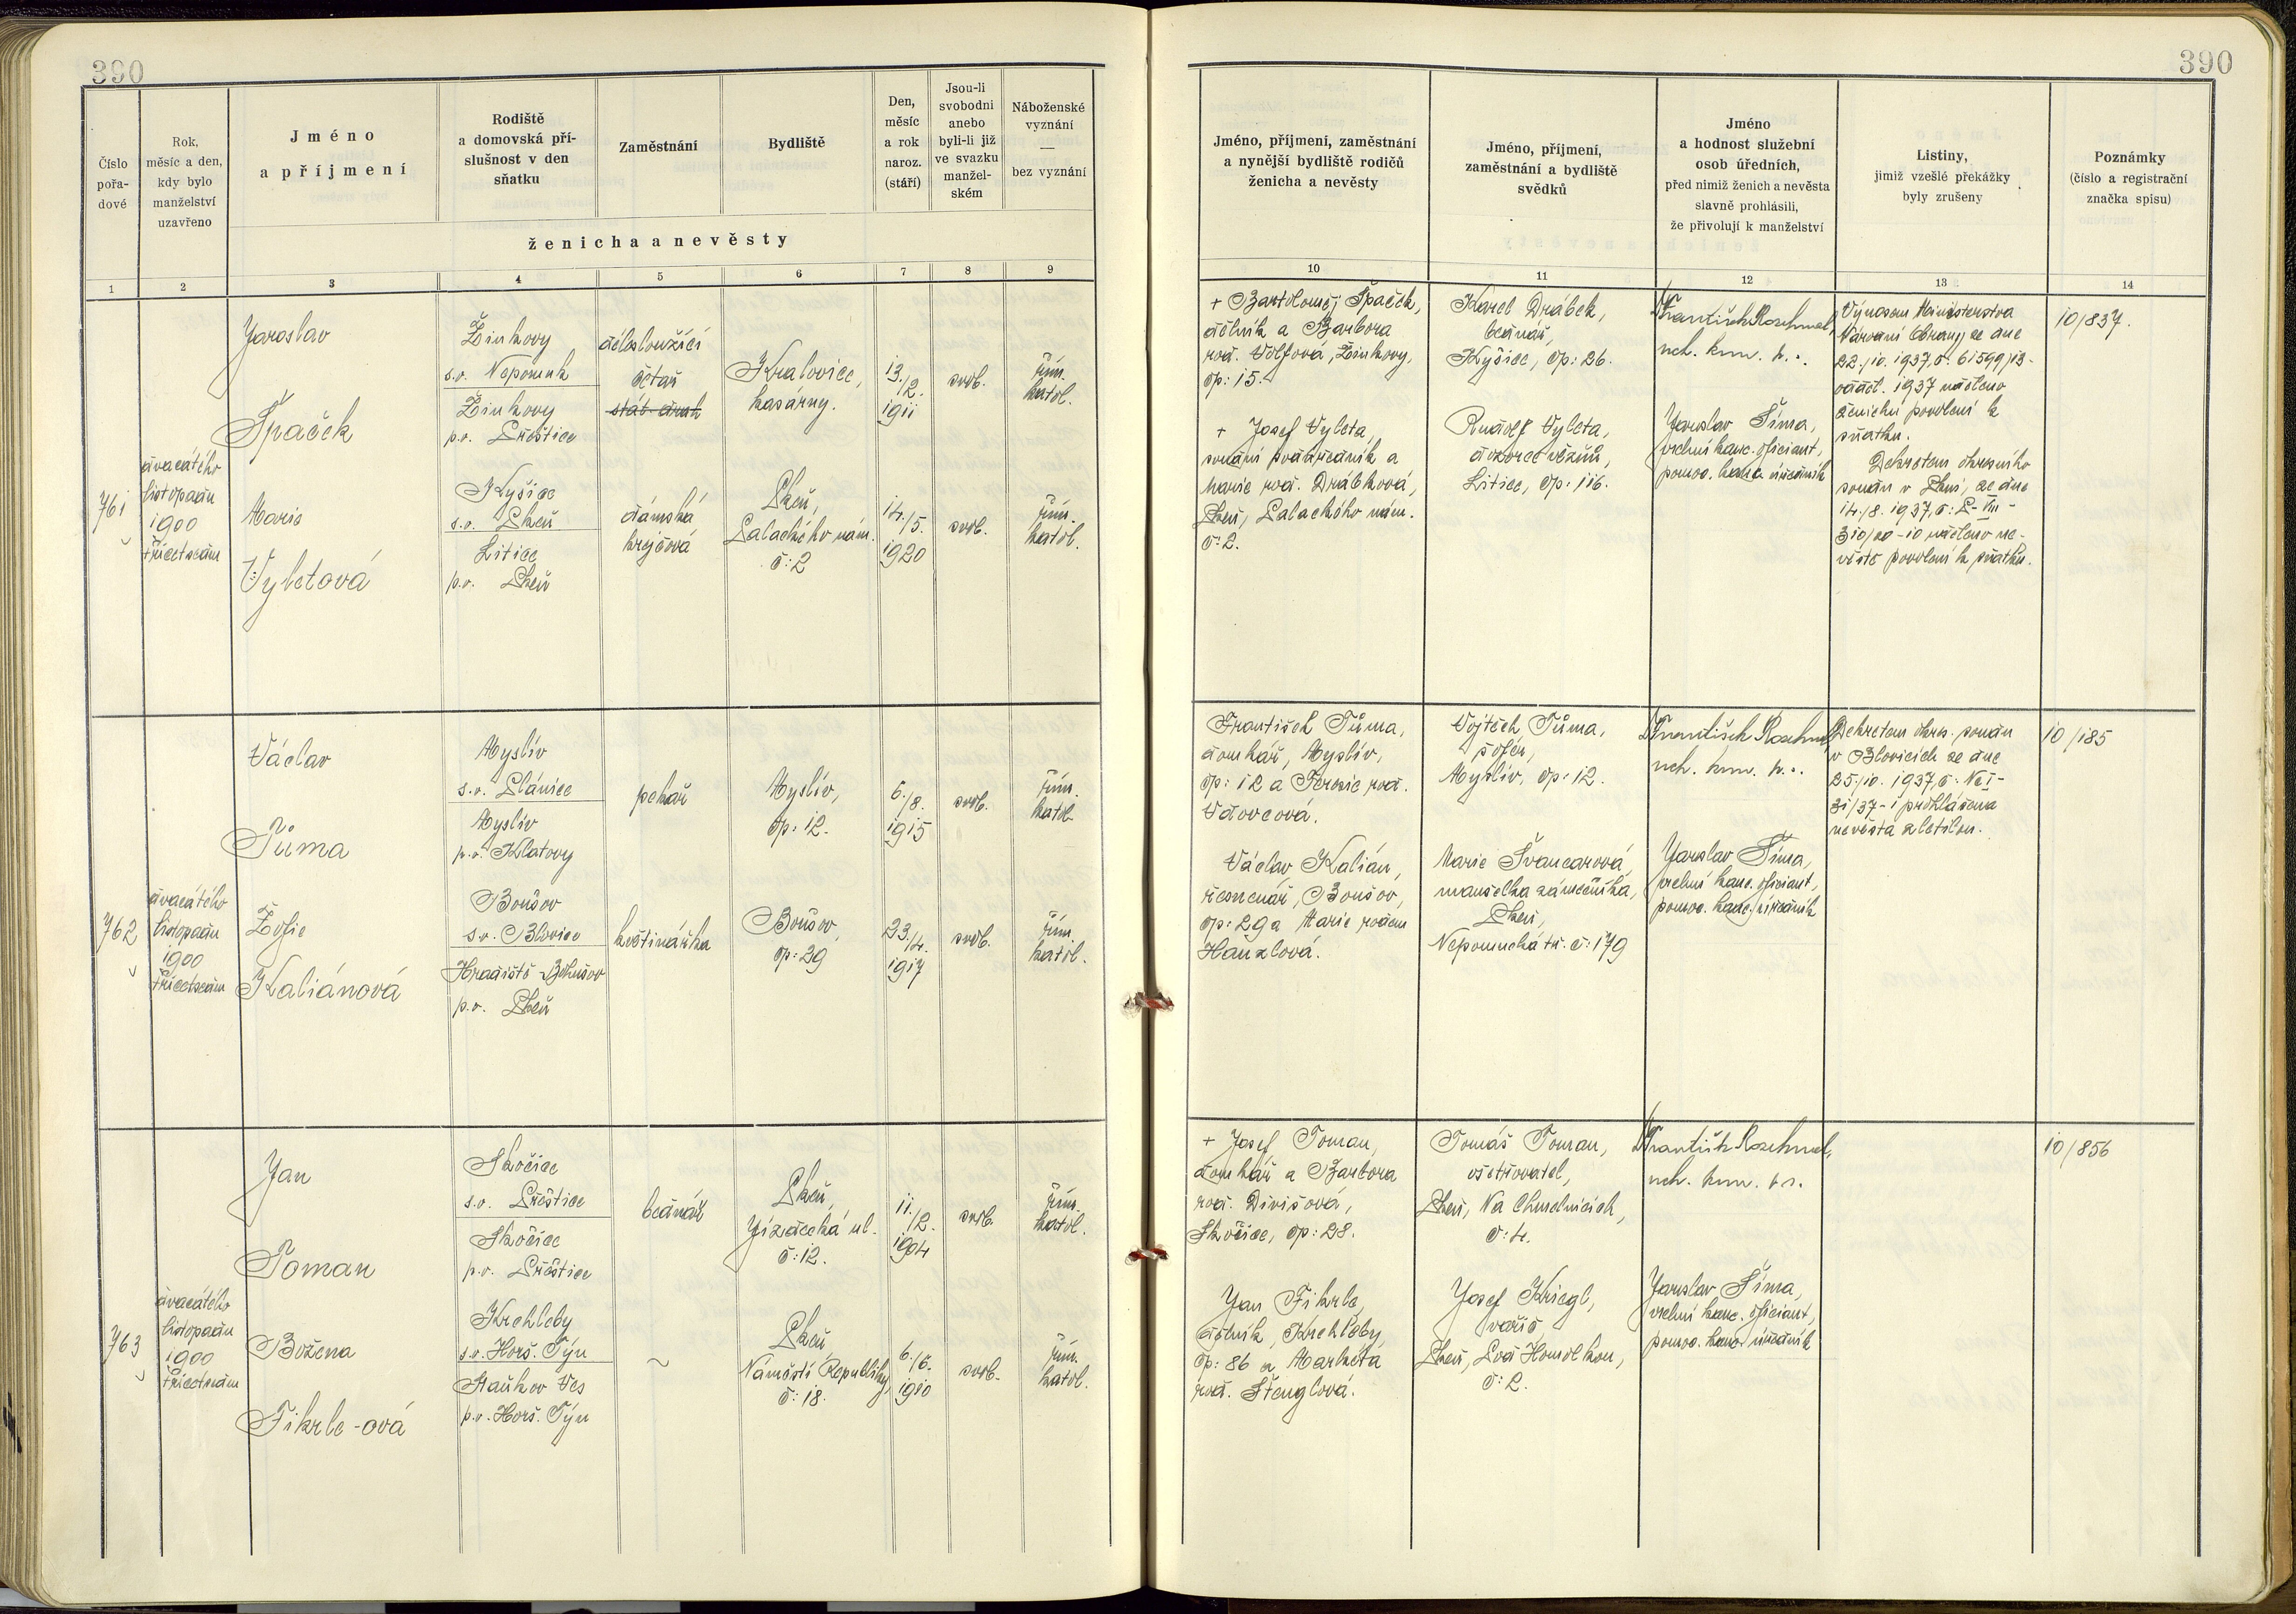 390
390
Číslo
pořa-
dové
Rok,
měsíc a den,
kdy bylo
manželství
uzavřeno
Jméno
a příjmení
Rodiště
a domovská pří-
slušnost v den
sňatku
Zaměstnání
Bydliště
Den,
měsíc
a rok
naroz.
(stáří)
Jsou-li
svobodni
anebo
byli-li již
ve svazku
manžel-
ském
Náboženské
vyznání
—
bez vyznání
ženicha a nevěsty
Jméno, příjmení, zaměstnání
a nynější bydliště rodičů
ženicha a nevěsty
Jméno, příjmení,
zaměstnání a bydliště
svědků
Jméno
a hodnost služební
osob úředních,
před nimiž ženich a nevěsta
slavně prohlásili,
že přivolují k manželství
Listiny,
jimiž vzešlé překážky
byly zrušeny
Poznámky
(číslo a registrační
značka spisu)
1 2 3 4 5 6 7 8 9
10 11 12 13 14
761
dvacátého
listopadu
1900
třicetsedm
Jaroslav
Špaček
Žinkovy
s.o. Nepomuk
Žinkovy
p.o. Přeštice
délesloužící
četař
stát. drah
Kralovice,
kasárny.
13./2.
1911
svob.
řím.
katol.
Marie
Vyletová
Kyšice
s.o. Plzeň
Litice
p.o. Plzeň
dámská
krejčová
Plzeň,
Palackého nám.
č: 2
14./5.
1920
svob.
řím.
katol.
+ Bartoloměj Špaček,
dělník a Barbora
roz. Volfová, Žinkovy,
čp: 15.
+ Josef Vyleta,
soudní podúředník a
Marie roz. Drábková,
Plzeň, Palackého nám.
č: 2.
Karel Drábek,
bednář,
Kyšice, čp: 26.
Rudolf Vyleta,
dozorce vězňů,
Litice, čp: 116.
Jaroslav Šíma,
vrchní kanc. oficiant,
pomoc. kanc. úředník
Výnosem Ministerstva
Národní Obrany ze dne
22./10. 1937, č. 61599/13-
odděl. 1937 uděleno
ženichu povolení k
sňatku.
Dekretem okresního
soudu v Plzni, ze dne
14./8. 1937, č: P-VIII-
310/20-10 uděleno ne-
věstě povolení k sňatku.
10/837.
762
dvacátého
listopadu
1900
třicetsedm
Václav
Tůma
Myslív
s.o. Plánice
Myslív
p.o. Klatovy
pekař
Myslív,
čp: 12.
6./8.
1915
svob.
řím.
katol.
Žofie
Kaliánová
s.o. Blovice
p.o. Plzeň
květinářka
čp: 29
23./4.
1917
svob.
řím.
katol.
František Tůma,
domkář, Myslív,
čp: 12 a Terezie roz.
Vdovcová.
Václav Kalián,
čp: 29 a Marie rozen
Hanzlová.
Vojtěch Tůma,
šofér,
Myslív, čp: 12.
Marie Švancarová,
manželka zámečníka,
Plzeň,
Nepomucká tř. č: 179
Jaroslav Šíma,
vrchní kanc. oficiant,
pomoc. kanc. úředník
Dekretem okres. soudu
v Blovicích ze dne
25./10. 1937, č: Nc I-
31/37-1 prohlášena
nevěsta zletilou.
10/185
763
dvacátého
listopadu
1900
třicetsedm
Jan
Toman
Skočice
s.o. Přeštice
Skočice
p.o. Přeštice
bednář
Plzeň,
Jízdecká ul.
č: 12.
11./2.
1904
svob.
řím.
katol.
Božena
Fikrle-ová
Křchleby
s.o. Horš. Týn
Staňkov Ves
p.o. Horš. Týn
~
Plzeň,
Náměstí Republiky,
č: 18.
6./6.
1910
svob.
řím.
katol.
+ Josef Toman,
domkář a Barbora
roz. Divišová,
Skočice, čp: 28.
Jan Fikrle,
dělník, Křchleby,
čp: 86 a Markéta
roz. Štenglová.
Tomáš Toman,
ošetřovatel,
Plzeň, Na Chmelnicích,
č: 4.
Josef Kriegl,
vařič,
Plzeň, Pod Homolkou,
č: 2.
Jaroslav Šíma,
vrchní kanc. oficiant,
pomoc. kanc. úředník
10/856